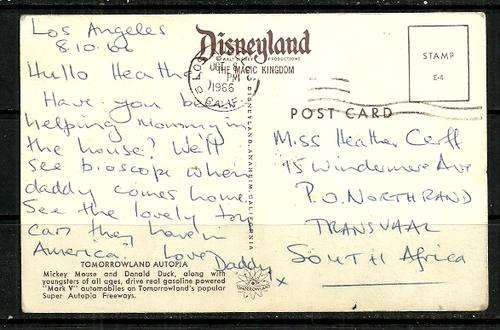 Los Angeles
8.10.66
Hullo Heather
Have you been
helping mommy in
the house? We'll
see bioscope when
daddy comes home.
See the lovely
cars they have in
America. Love Daddy
x
TOMORROWLAND AUTOPIA
Mickey Mouse and Donald Duck, along with
youngsters of all ages, drive real gasoline powered
"Mark V" automobiles on Tomorrowland's popular
Super Autopia Freeways.
Disneyland
© WALT DISNEY PRODUCTIONS
THE MAGIC KINGDOM
LOS
OCT
PM
1966
CALIF
DISNEYLAND, ANAHEIM, CALIFORNIA
STAMP
E-4
POST CARD
Miss Heather Cerff
15 Windermere Ave
P.O. NORTHRAND
TRANSVAAL
SOUTH Africa